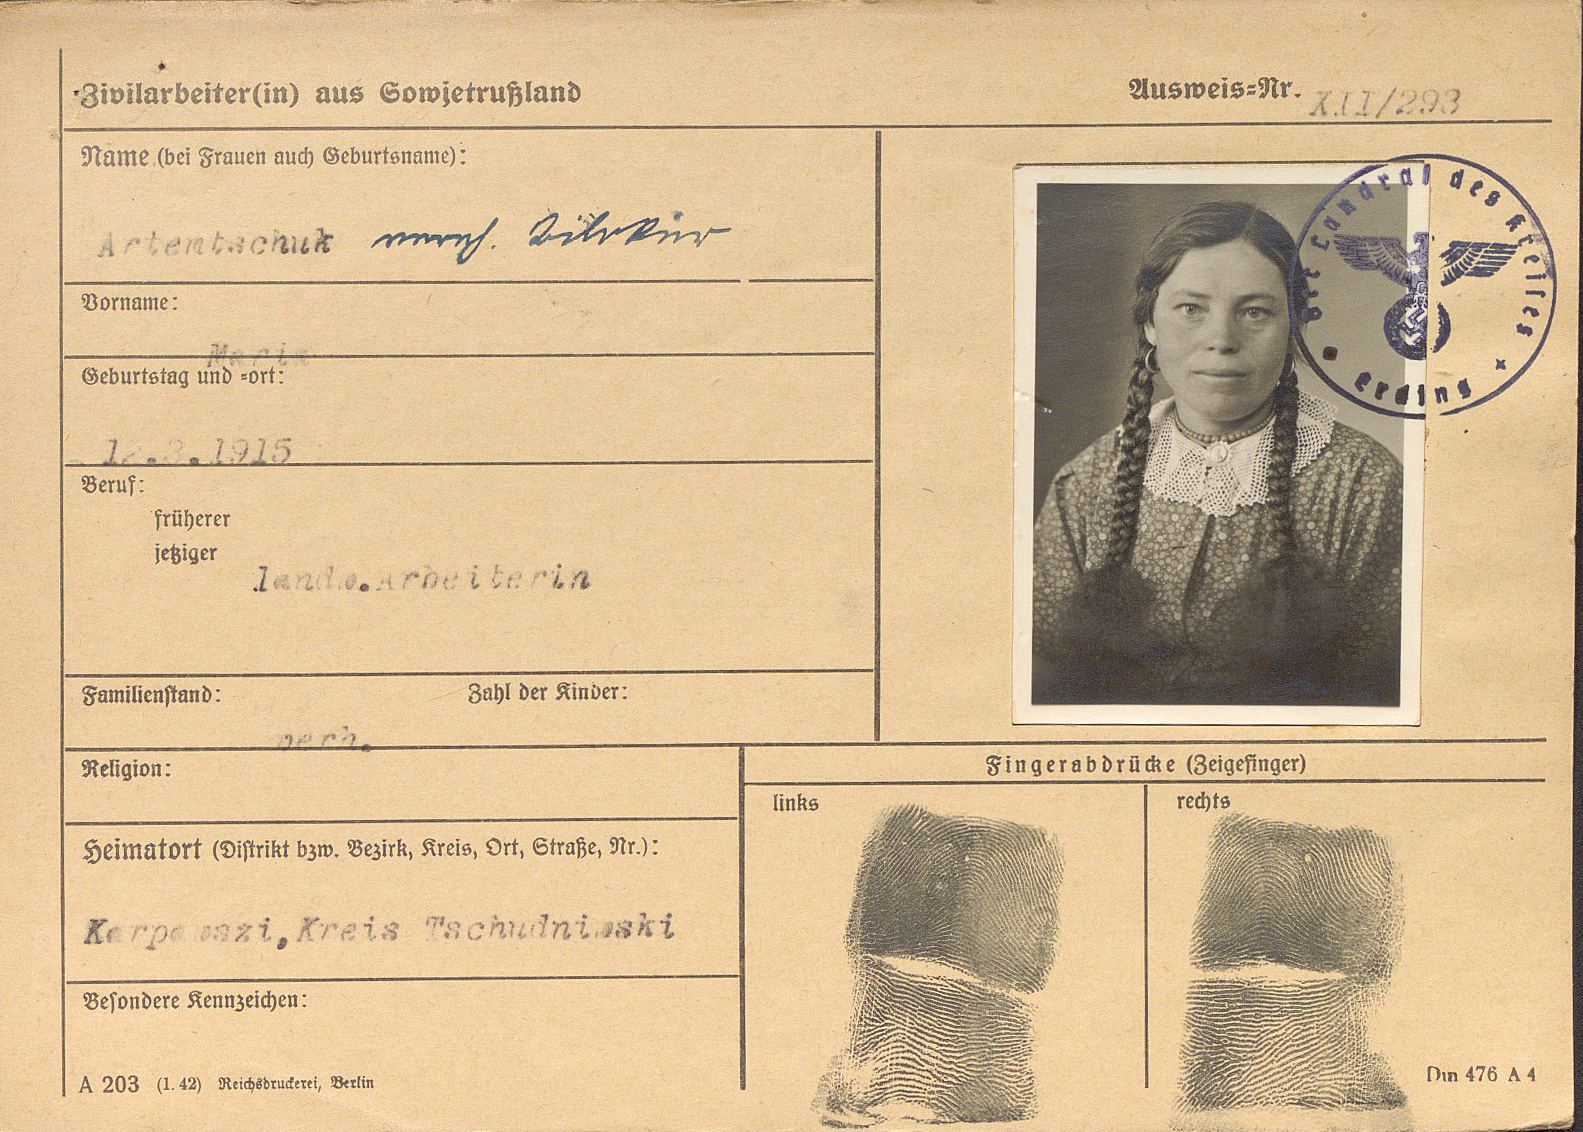 Zivilarbeiter(in) aus Sowjetrußland
Ausweis-Nr. XII/293
Name (bei Frauen auch Geburtsname):
Artemtschuk
Vorname:
Maria
Geburtstag und -ort:
.3.1915
Beruf:
früherer
jetziger
landw.Arbeiterin
Familienstand: Zahl der Kinder:
verh.
Religion:
Heimatort (Distrikt bzw. Bezirk, Kreis, Ort, Straße, Nr.):
Karpowszi,Kreis Tschudniwski
Besondere Kennzeichen:
A 203 (1. 42) Reichsdruckerei, Berlin
Der Landrat des Kreises
Erding
Fingerabdrücke (Zeigefinger)
links
rechts
Din 476 A 4